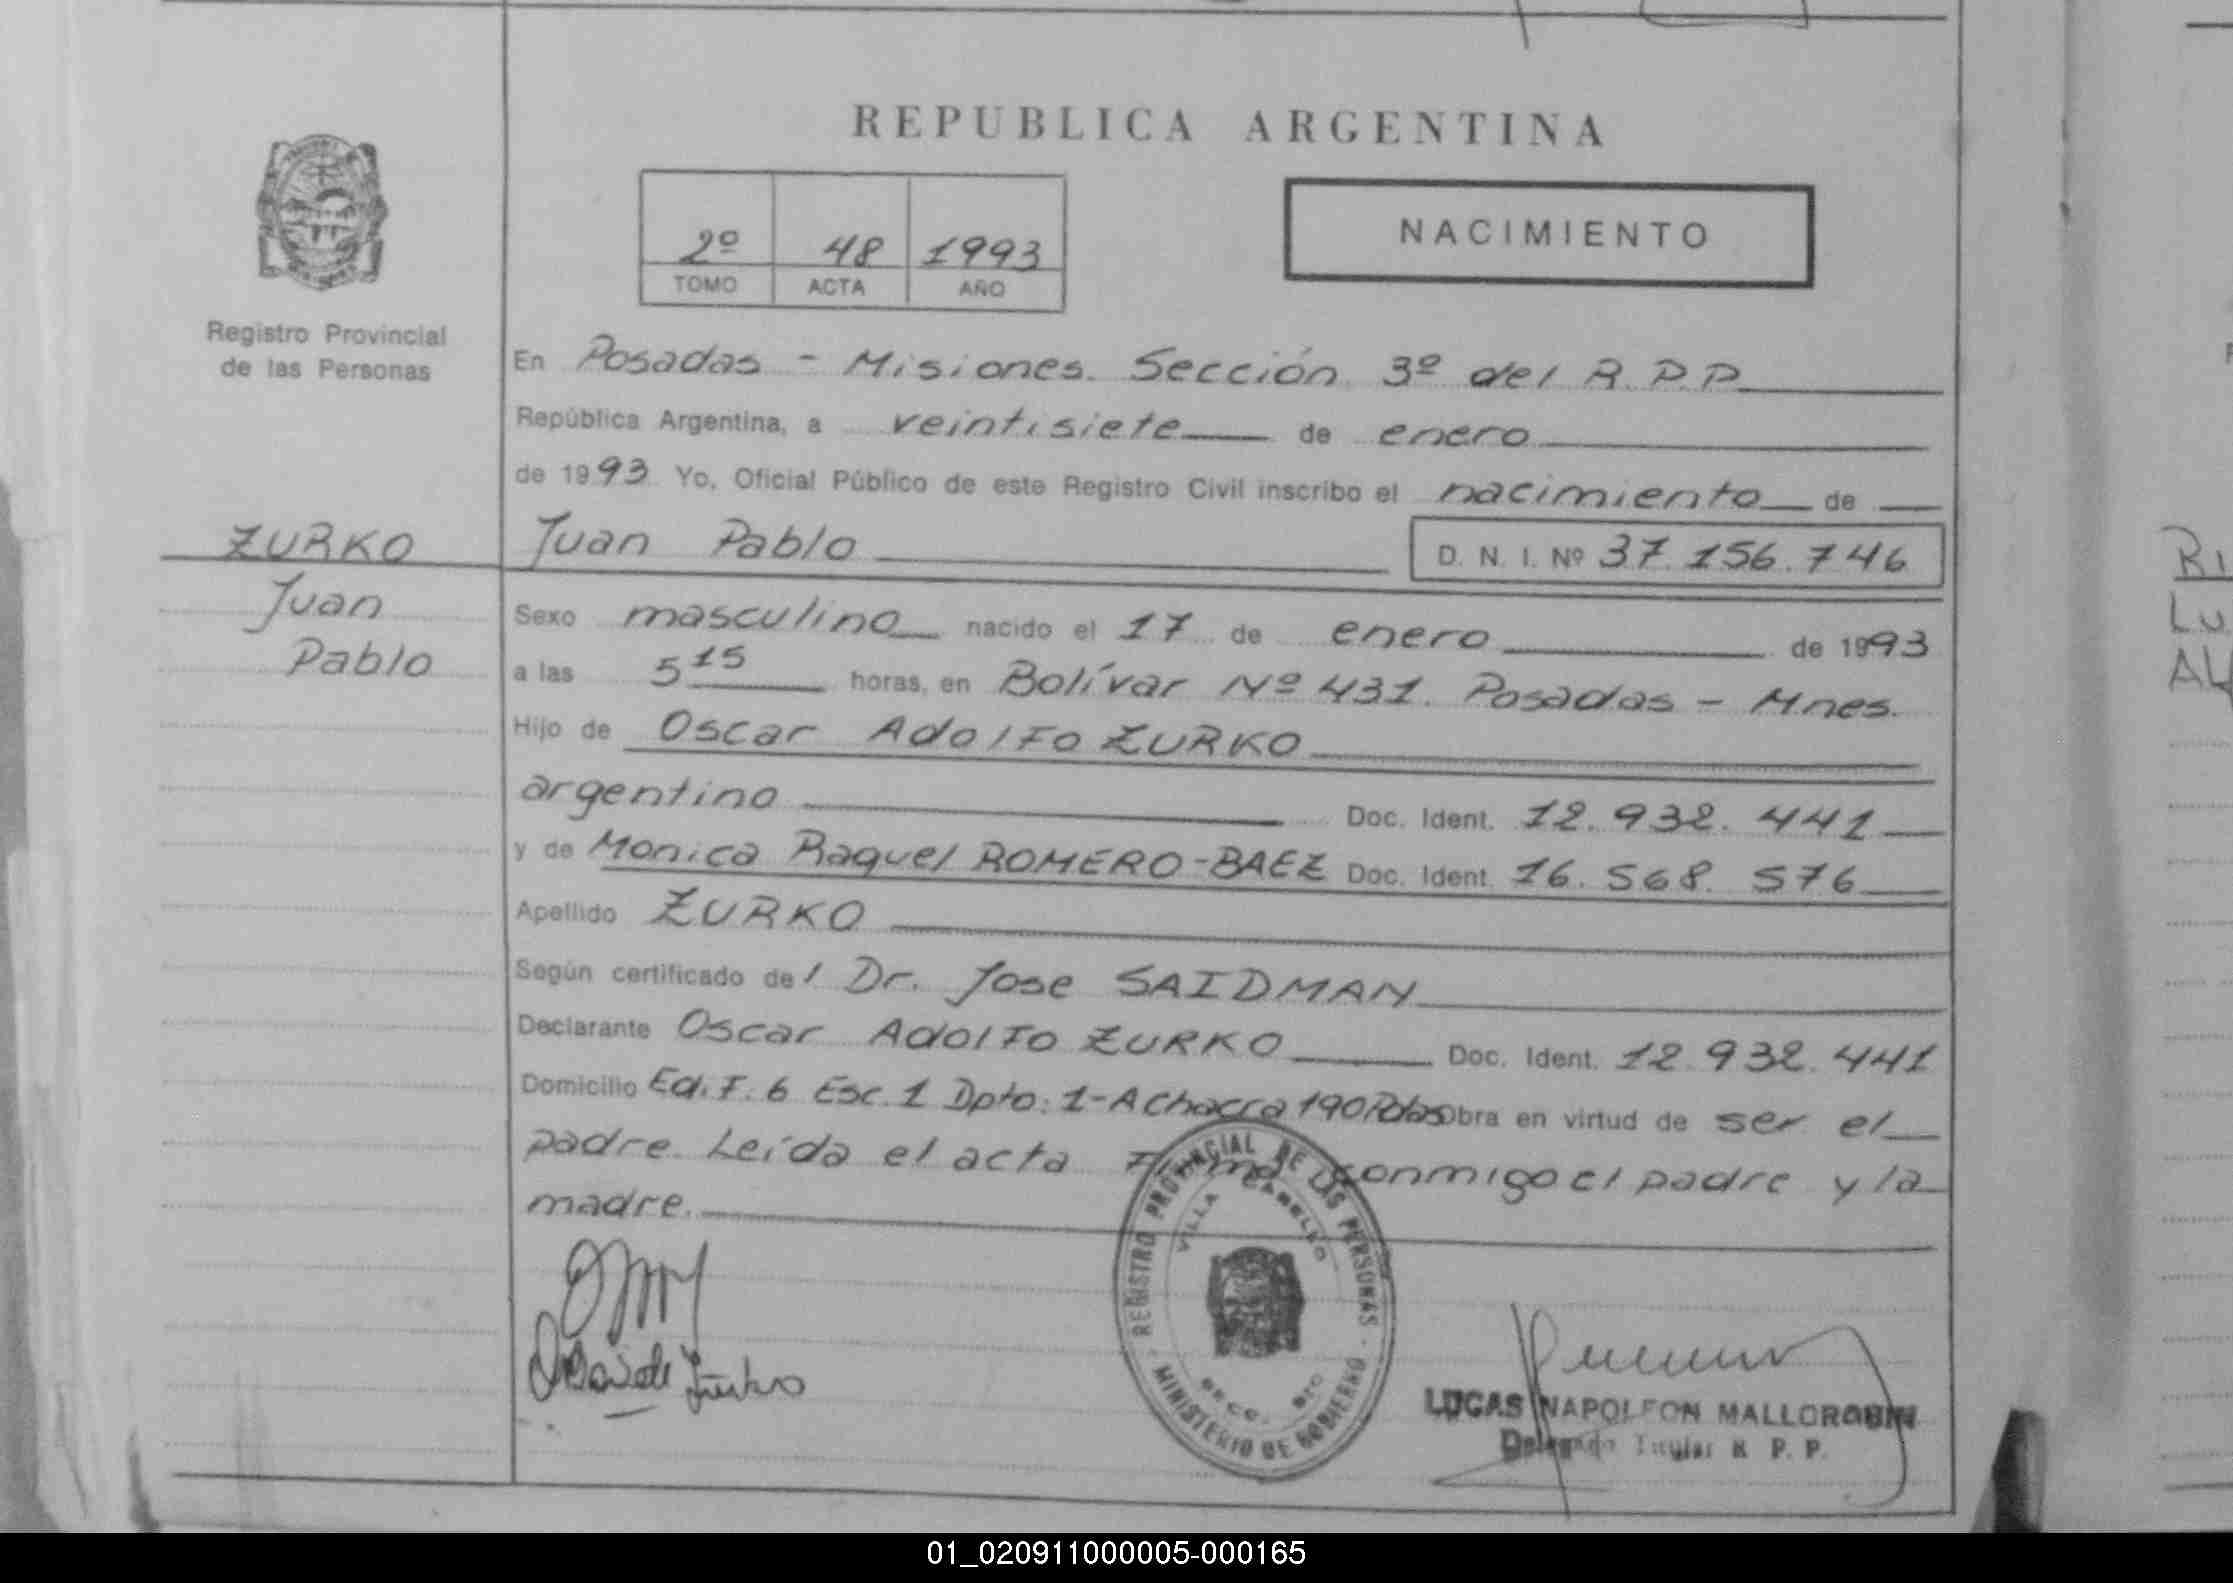 REPUBLICA ARGENTINA
NACIMIENTO
2º 48 1993
TOMO ACTA AÑO
Registro Provincial
de las Personas
En Posadas - Misiones. Sección 3º del R.P.P.
República Argentina, a veintisiete de enero
de 1993 Yo, Oficial Público de este Registro Civil inscribo el nacimiento de
ZURKO
Juan
Pablo
Juan Pablo D. N. I. Nº 37.156.746
Sexo masculino nacido el 17 de enero de 1993
a las 5 15 horas, en Bolívar Nº 431. Posadas - Mnes.
Hijo de Oscar Adolfo ZURKO
argentino Doc. Ident. 12.932.441
y de Monica Raquel ROMERO-BAEZ Doc. Ident. 16.568.576
Apellido ZURKO
Según certificado del Dr. Jose SAIDMAN
Declarante Oscar Adolfo ZURKO Doc. Ident. 12.932.441
Domicilio Edif. 6 Esc. 1 Dpto: 1-A Chacra 190 Pdas Obra en virtud de ser el
padre. Leída el acta Firma conmigo el padre y la
madre.
REGISTRO PROVINCIAL DE LAS PERSONAS
VILLA CABELLO
MINISTERIO DE GOBIERNO
LUCAS NAPOLEON MALLOROBIN
Delegado Titular R. P. P.
Lu
01_020911000005-000165